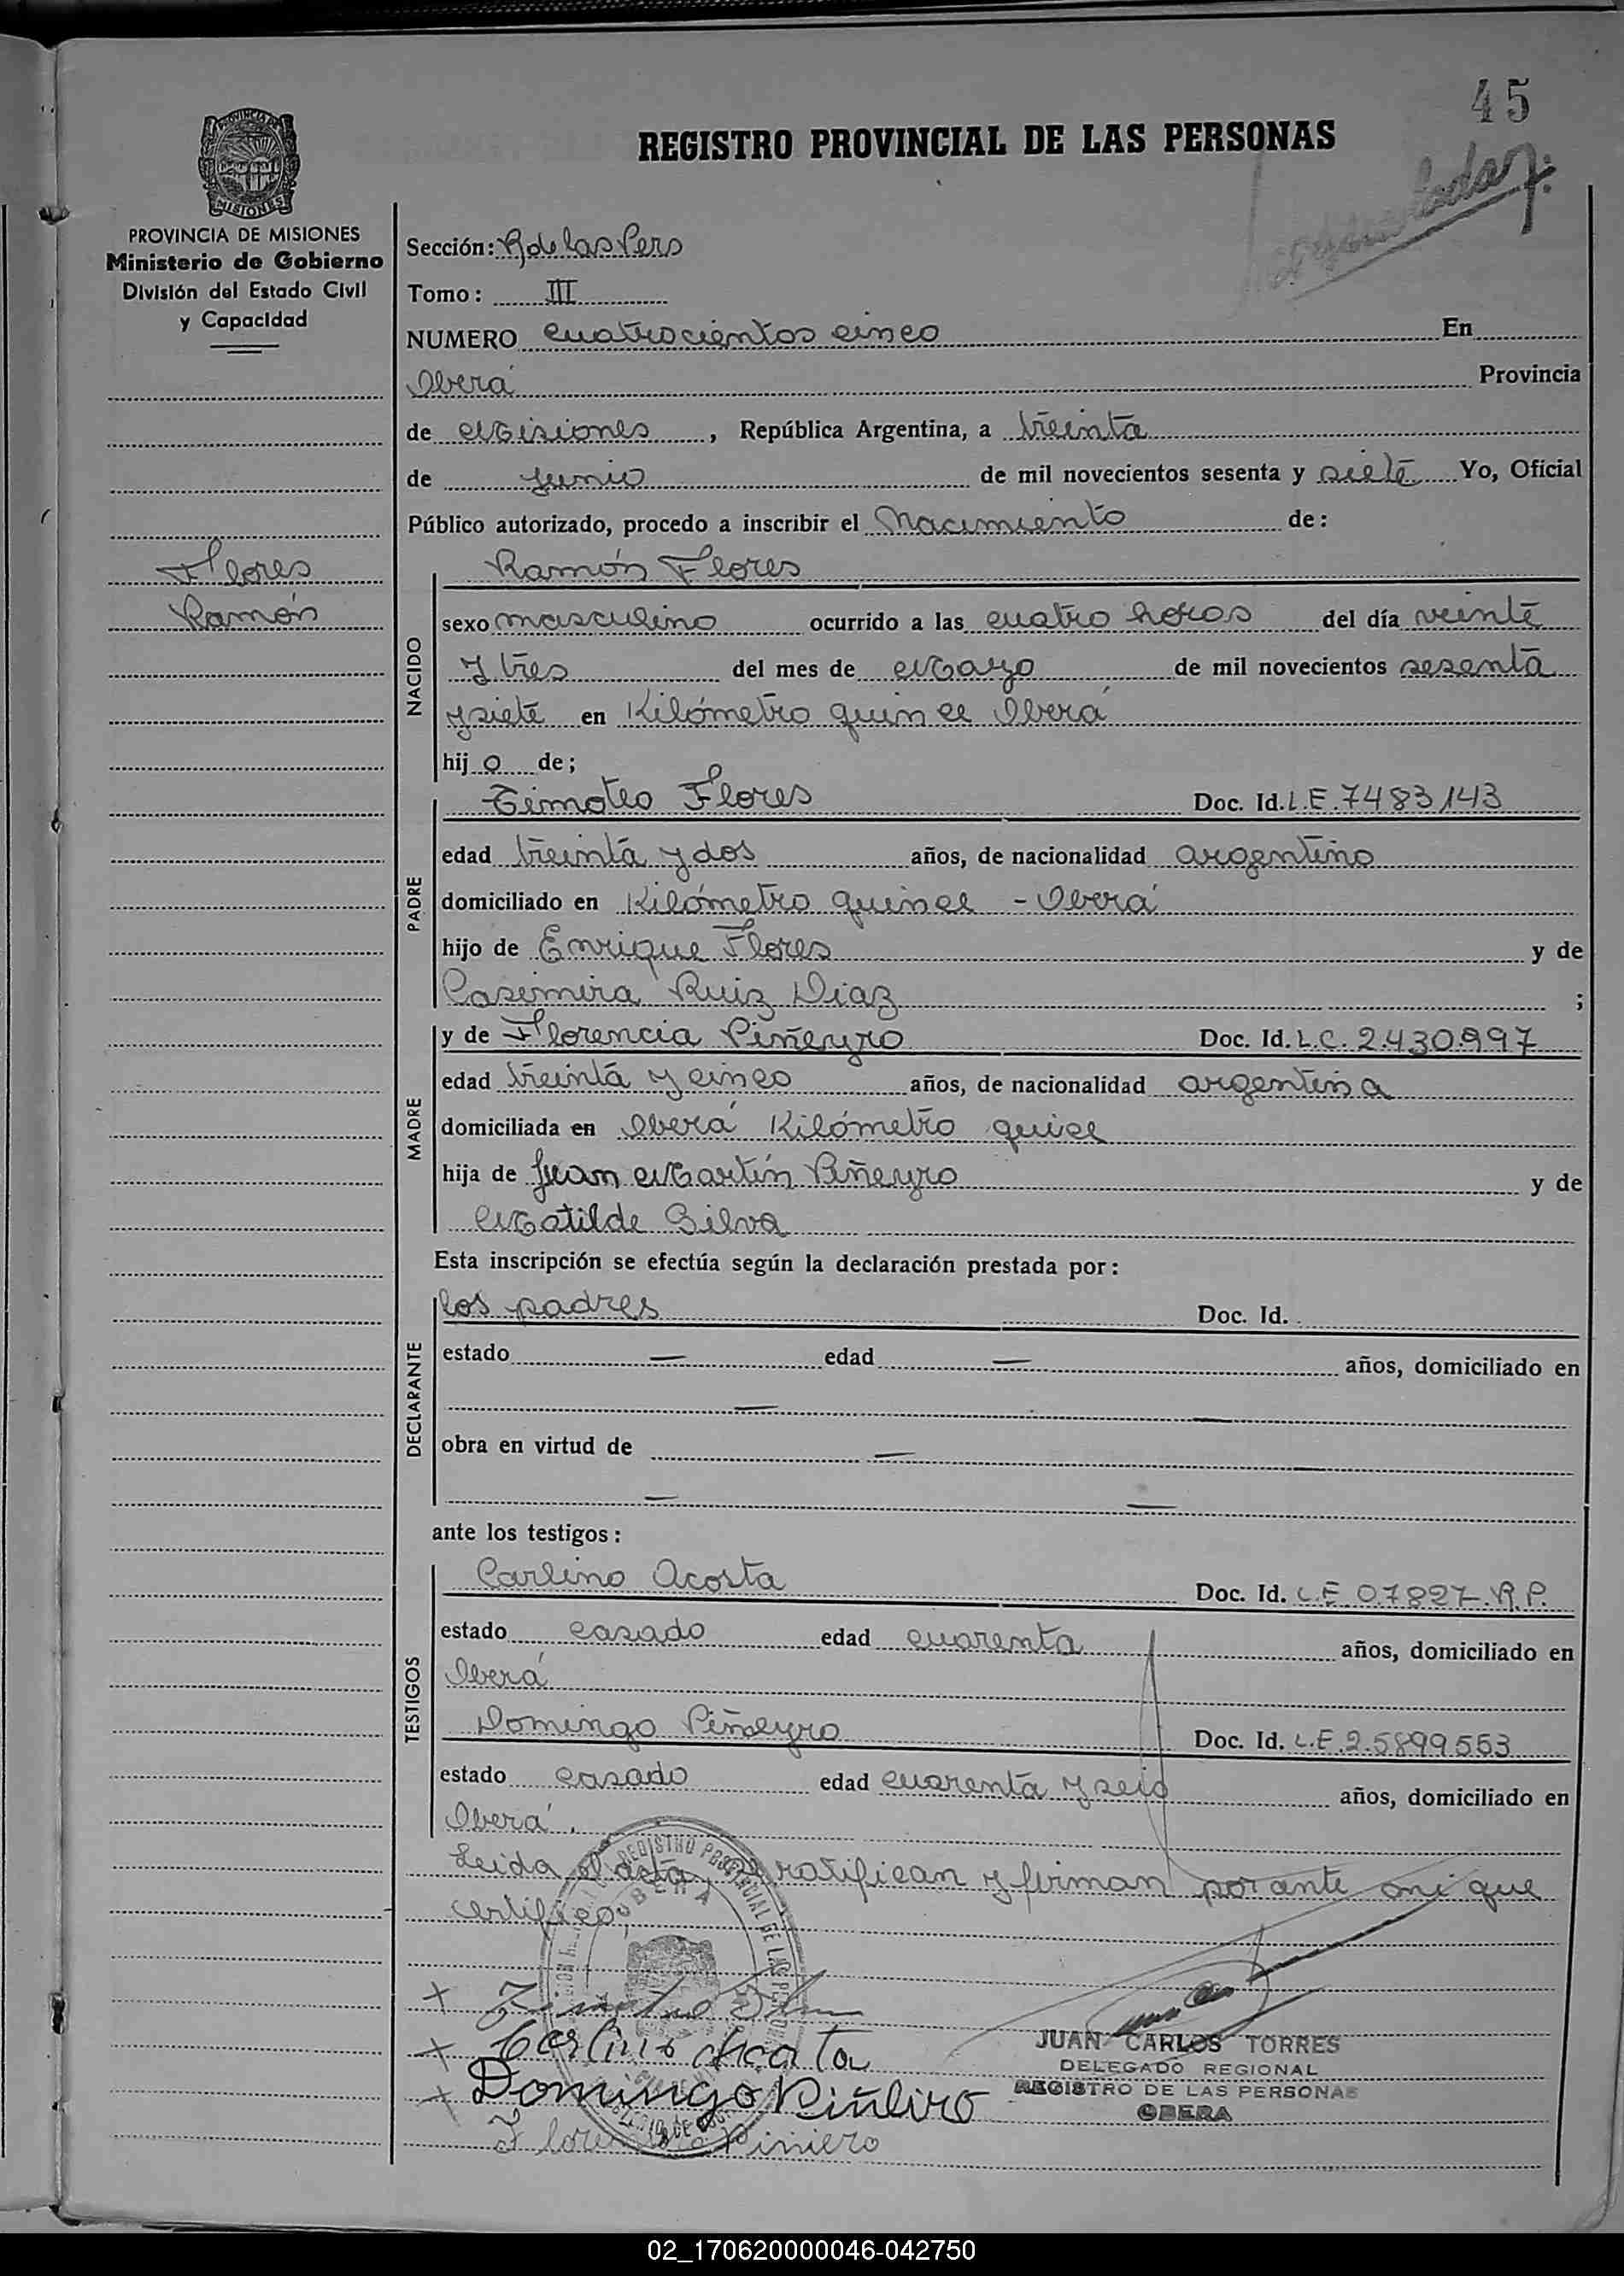 45
REGISTRO PROVINCIAL DE LAS PERSONAS
PROVINCIA DE MISIONES
Ministerio de Gobierno
División del Estado Civil
y Capacidad
Sección: R de las Pers
Tomo: III
NUMERO cuatrocientos cinco En
Oberá Provincia
de Misiones, República Argentina, a treinta
de junio de mil novecientos sesenta y siete Yo, Oficial
Público autorizado, procedo a inscribir el Nacimiento de:
Flores
Ramón
NACIDO
Ramón Flores
sexo masculino ocurrido a las cuatro horas del día veinte
y tres del mes de Mayo de mil novecientos sesenta
y siete en Kilómetro quince Oberá
hijo de;
PADRE
Timoteo Flores Doc. Id. L.E. 7483143
edad treinta y dos años, de nacionalidad argentino
domiciliado en Kilómetro quince - Oberá
hijo de Enrique Flores y de
Casimira Ruiz Diaz ;
MADRE
y de Florencia Piñeyro Doc. Id. L.C. 2.430.997
edad treinta y cinco años, de nacionalidad argentina
domiciliada en Oberá Kilómetro quice
hija de Juan Martín Piñeyro y de
Matilde Silva
Esta inscripción se efectúa según la declaración prestada por:
DECLARANTE
los padres Doc. Id.
estado — edad — años, domiciliado en
—
obra en virtud de —
— —
ante los testigos:
TESTIGOS
Carlino Acosta Doc. Id. L.E. 07827 R.P.
estado casado edad cuarenta años, domiciliado en
Oberá
Domingo Piñeyro Doc. Id. L.E. 2.5899553
estado casado edad cuarenta y seis años, domiciliado en
Oberá.
Leida el acta, ratifican y firman por ante mi que
certifico,
Carlino Acosta
Domingo Piñeiro
Florencia Piniero
JUAN CARLOS TORRES
DELEGADO REGIONAL
REGISTRO DE LAS PERSONAS
OBERA
02_170620000046-042750